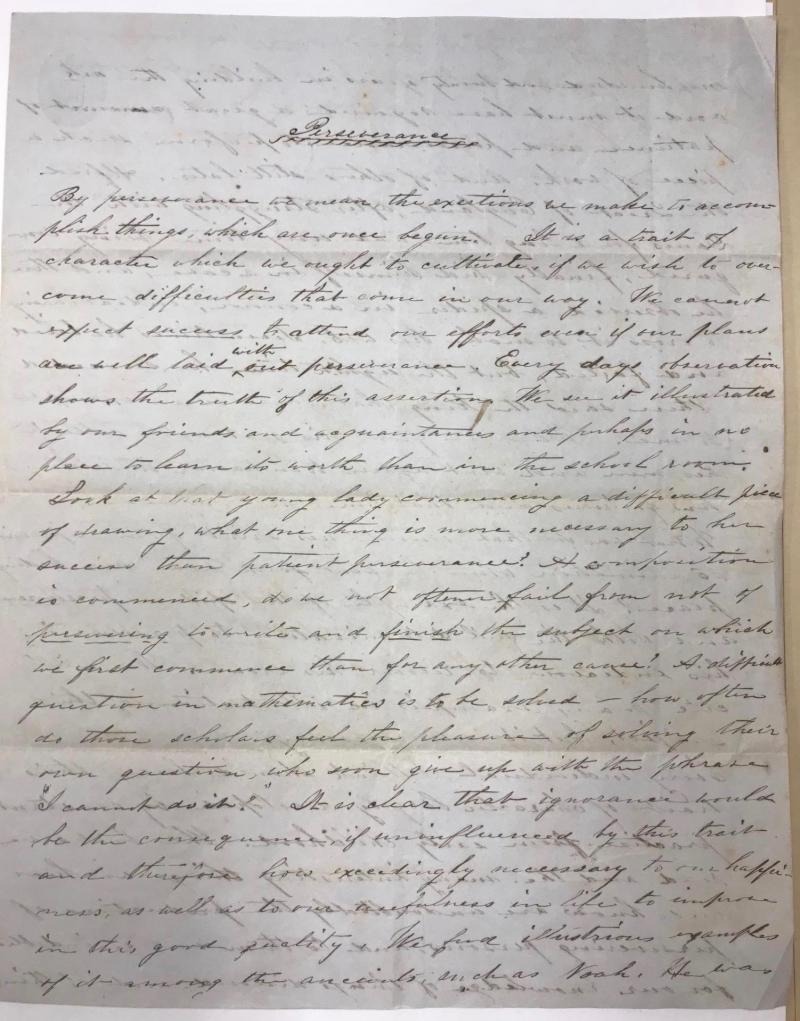 Perseverance
By perseverance we mean the exertions we make to accom-
plish things, which are once begun. It is a trait of
character which we ought to cultivate, if we wish to over-
come difficulties that come in our way. We cannot
expect success to attend our efforts even if our plans
are well laid with out perseverance. Every days observation
shows the truth of this assertion. We see it illustrated
by our friends and acquaintances and perhaps in no
place to learn its worth than in the school room.
Look at that young lady commencing a difficult piece
of drawing, what one thing is more necessary to her
success than patient perseverance? A composition
is commenced, do we not oftener fail from not of
persevering to write and finish the subject on which
we first commence than for any other cause? A difficult
question in mathematics is to be solved – how often
do those scholars feel the pleasure of solving their
own question, who soon give up with the phrase
"I cannot do it!" It is clear that ignorance would
be the consequence, if uninfluenced by this trait
and therefore how exceedingly necessary to our happi-
ness, as well as to our usefulness in life to improve
in this good quality. We find illustrious examples
of it among the ancients, such as Noah. He was